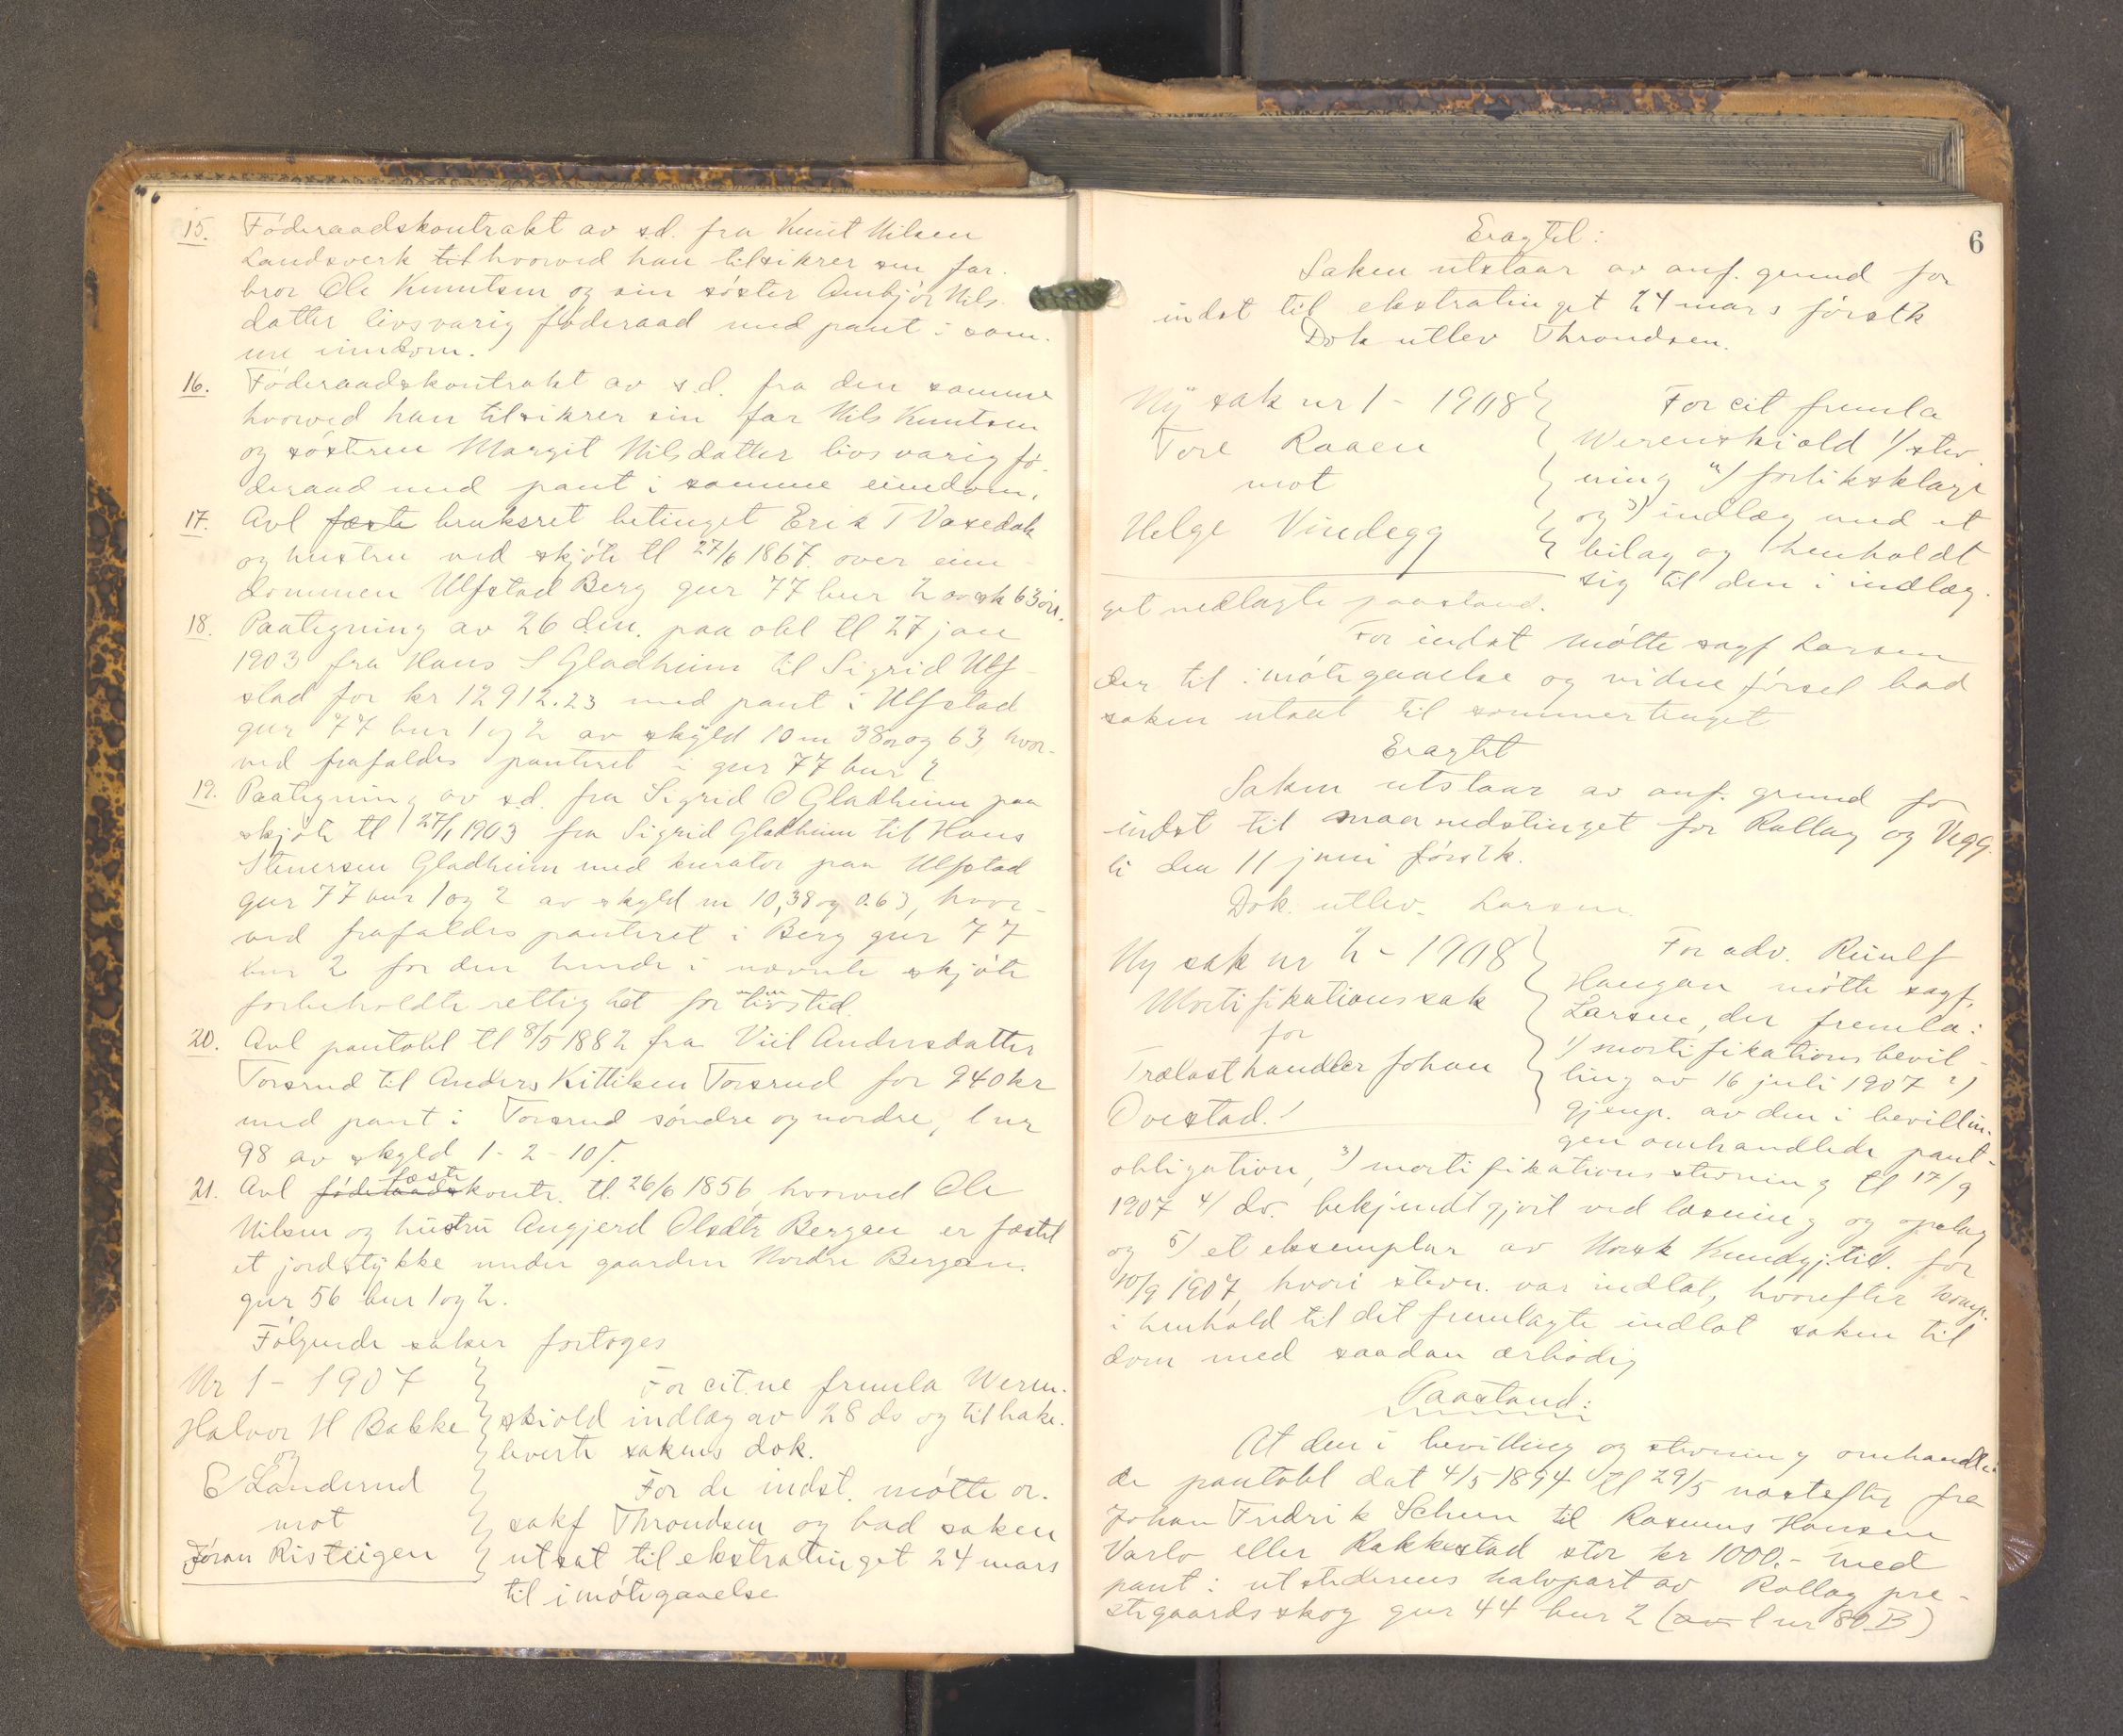 15. Föderaadskontrakt av s.d. fra Knut Nilsen
Landsverk til hvorved han tilsikrer sin far.
bror Ole Knutsen og sin söster Ambjör Nils
datter livsvarig föderaad med pant i sam.
me eiendom.
16. Föderaadskontrakt av s.d. fra den samme
hvorved han tilsikrer sin far Nils Knutsen
og sösteren Margit Nilsdatter livsvarig fö-
deraad med pant i samme eiendom.
17. Avl fæste bruksret betinget Erik T Vasedak
og hustru ved skjöte tl 27/6 1867. over eien
dommen Ulfstad Berg gnr 77 bnr 2 av sk 63 öre.
18. Paategning av 26 ds. paa obl tl 27 jan
1903 fra Hans S Gladheim til Sigrid Ulf-
stad for kr 12912.23 med pant i Ulfstad
gnr 77 bnr 1 og 2 av skyld 10 m 38 ör og 63, hvor-
ved frafaldes panteret i gnr 77 bnr 2
19. Paategning av s.d. fra Sigrid O Gladheim paa
skjöte tl 27/1 1903 fra Sigrid Gladheim til Hans
Stenersen Gladheim med kurator paa Ulfstad
gnr 77 bnr 1 og 2 av skyld m 10,38 og 0.63, hvor-
ved frafaldes panteret i Berg gnr 77
bnr 2 for den hende i nævnte skjöte
forbeholdte rettighet for livstid.
20. Avl pantobl tl 8/5 1882 fra Viil Andersdatter
Torsrud til Anders Kittilsen Torsrud for 940 kr
med pant i Torsrud söndre og nordre, lnr
98 av skyld 1-2-10/.
21. Avl föderaads fæstekontr. tl. 26/6 1856, hvorved Ole
Nilsen og hustru Angjerd Olsdtr Bergan er fæstet
et jordstykke under gaarden Nordre Bergan.
gnr 56 bnr 1 og 2.
Følgende saker foretoges
Nr 1 - 1907
Halvor H Bakke
og
E Landerud
mot
Jöran Risteigen
For cit.ne fremla Weren.
skiold indlæg av 28 ds og tilbake.
leverte sakens dok.
For de indst. mötte or.
sakf Throndsen og bad saken
utsat til ekstratinget 24 mars
til imötegaaelse
6
Eragtet:
Saken utstaar av anf. grund for
indst til ekstratinget 24 mars förstk
Dok utlev Throndsen.
Ny sak nr 1 - 1908
Tore Raaen
mot
Helge Vindegg
For cit fremla
Werenskiold 1/ stev
ning 2/ forliksklage
og 3) indlæg med et
bilag og henholdt
sig til den i indlæg.
get nedlagte paastand.
For indst mötte sagf Larsen
der til imötegaaelse og vidneførsel bad
saken utsat til sommertinget
Eragtet
Saken utstaar av anf. grund for
indst til maanedstinget for Rollag og Vegg.
li den 11 juni förstk.
Dok. utlev. Larsen.
Ny sak nr 2 - 1908
Mortifikationssak
for
Trælasthandler Johan
Overstad.
For adv. Runlf
Haugan mötte sagf.
Larsen, der fremla:
1/ mortifikationsbevil-
ling av 16 juli 1907 2)
gjenp. av den i bevillin.
gen omhandlede pant-
obligation, 3) mortifikationsstevning tl 17/9
1907 4/ do. bekjendtgjort ved læsning og opslag
og 5) et eksemplar av Norsk Kundgj.tid. for
10/9 1907, hvori stevn. var indlat, hvorefter komp.
i henhold til det fremlagte indlot saken til
dom med saadan ærbödig
Paastand:
At den i bevilling og stevning omhandle-
de pantobl dat 4/5 1894 tl 29/5 næstefter fra
Johan Fredrik Schun til Rasmus Hansen
Varlo eller Rakkestad stor kr 1000.- med
pant i utstederens halvpart av Rollag pre-
stegaards skog gnr 44 bnr 2 (av lnr 80 B)